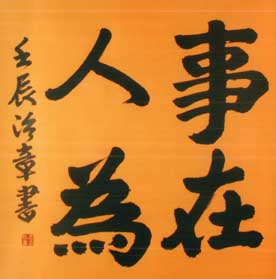 事在
人為
壬辰冷章書